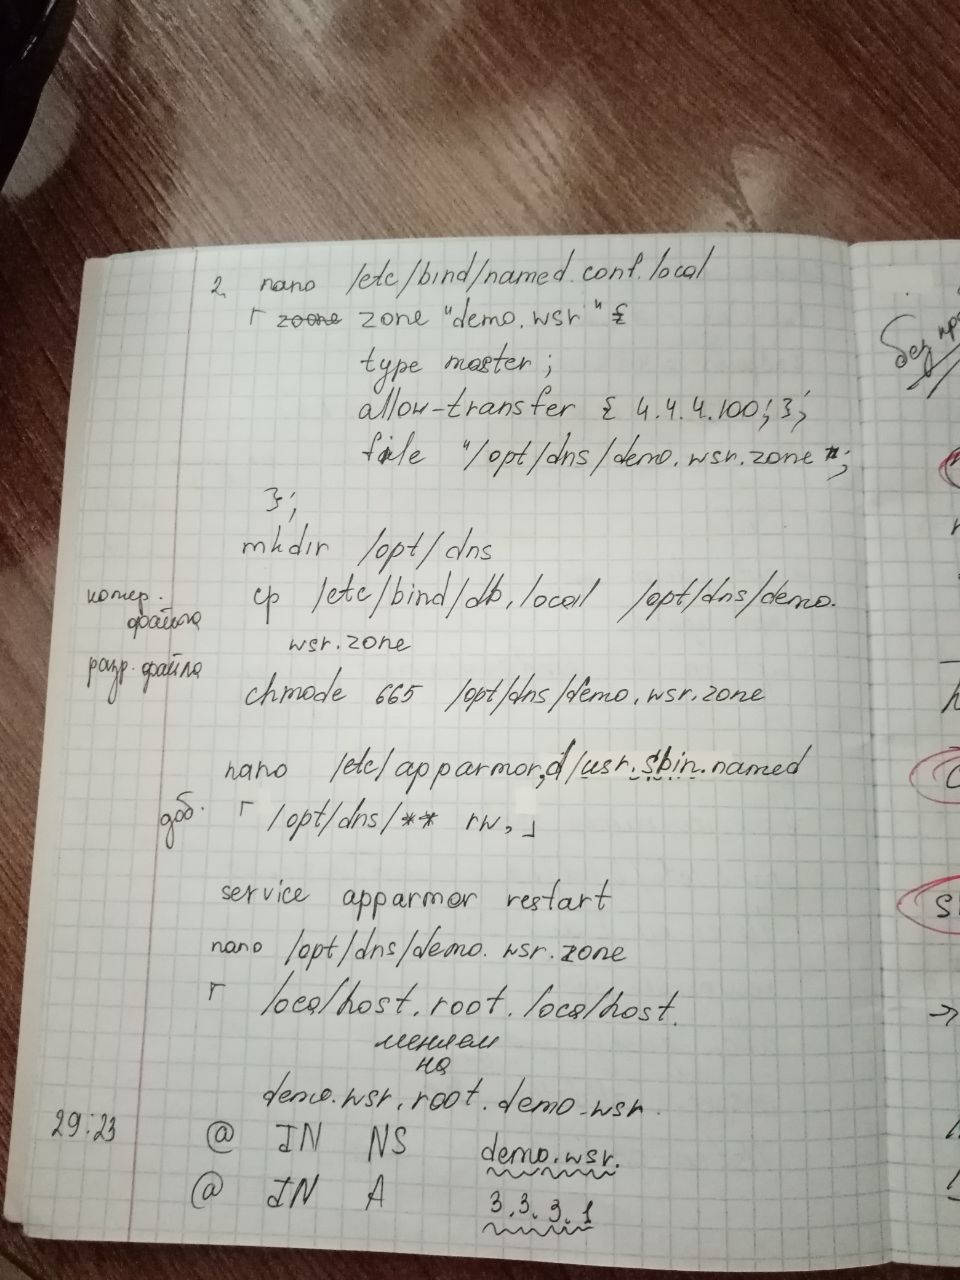 2 nano /etc/bind/named.conf.local
┌ zoone zone "demo.wsr" {
type master;
allow-transfer { 4.4.4.100; };
file "/opt/dns/demo.wsr.zone";
};
mkdir /opt/dns
копир. cp /etc/bind/db.local /opt/dns/demo.
файла wsr.zone
разр. файла chmode 665 /opt/dns/demo.wsr.zone
nano /etc/apparmor.d/usr.sbin.named
доб. ┌ /opt/dns/** rw, ┘
service apparmor restart
nano /opt/dns/demo.wsr.zone
┌ localhost. root. localhost.
меняем
на
demo.wsr. root. demo.wsr.
29:23 @ IN NS demo.wsr.
@ IN A 3.3.3.1
без